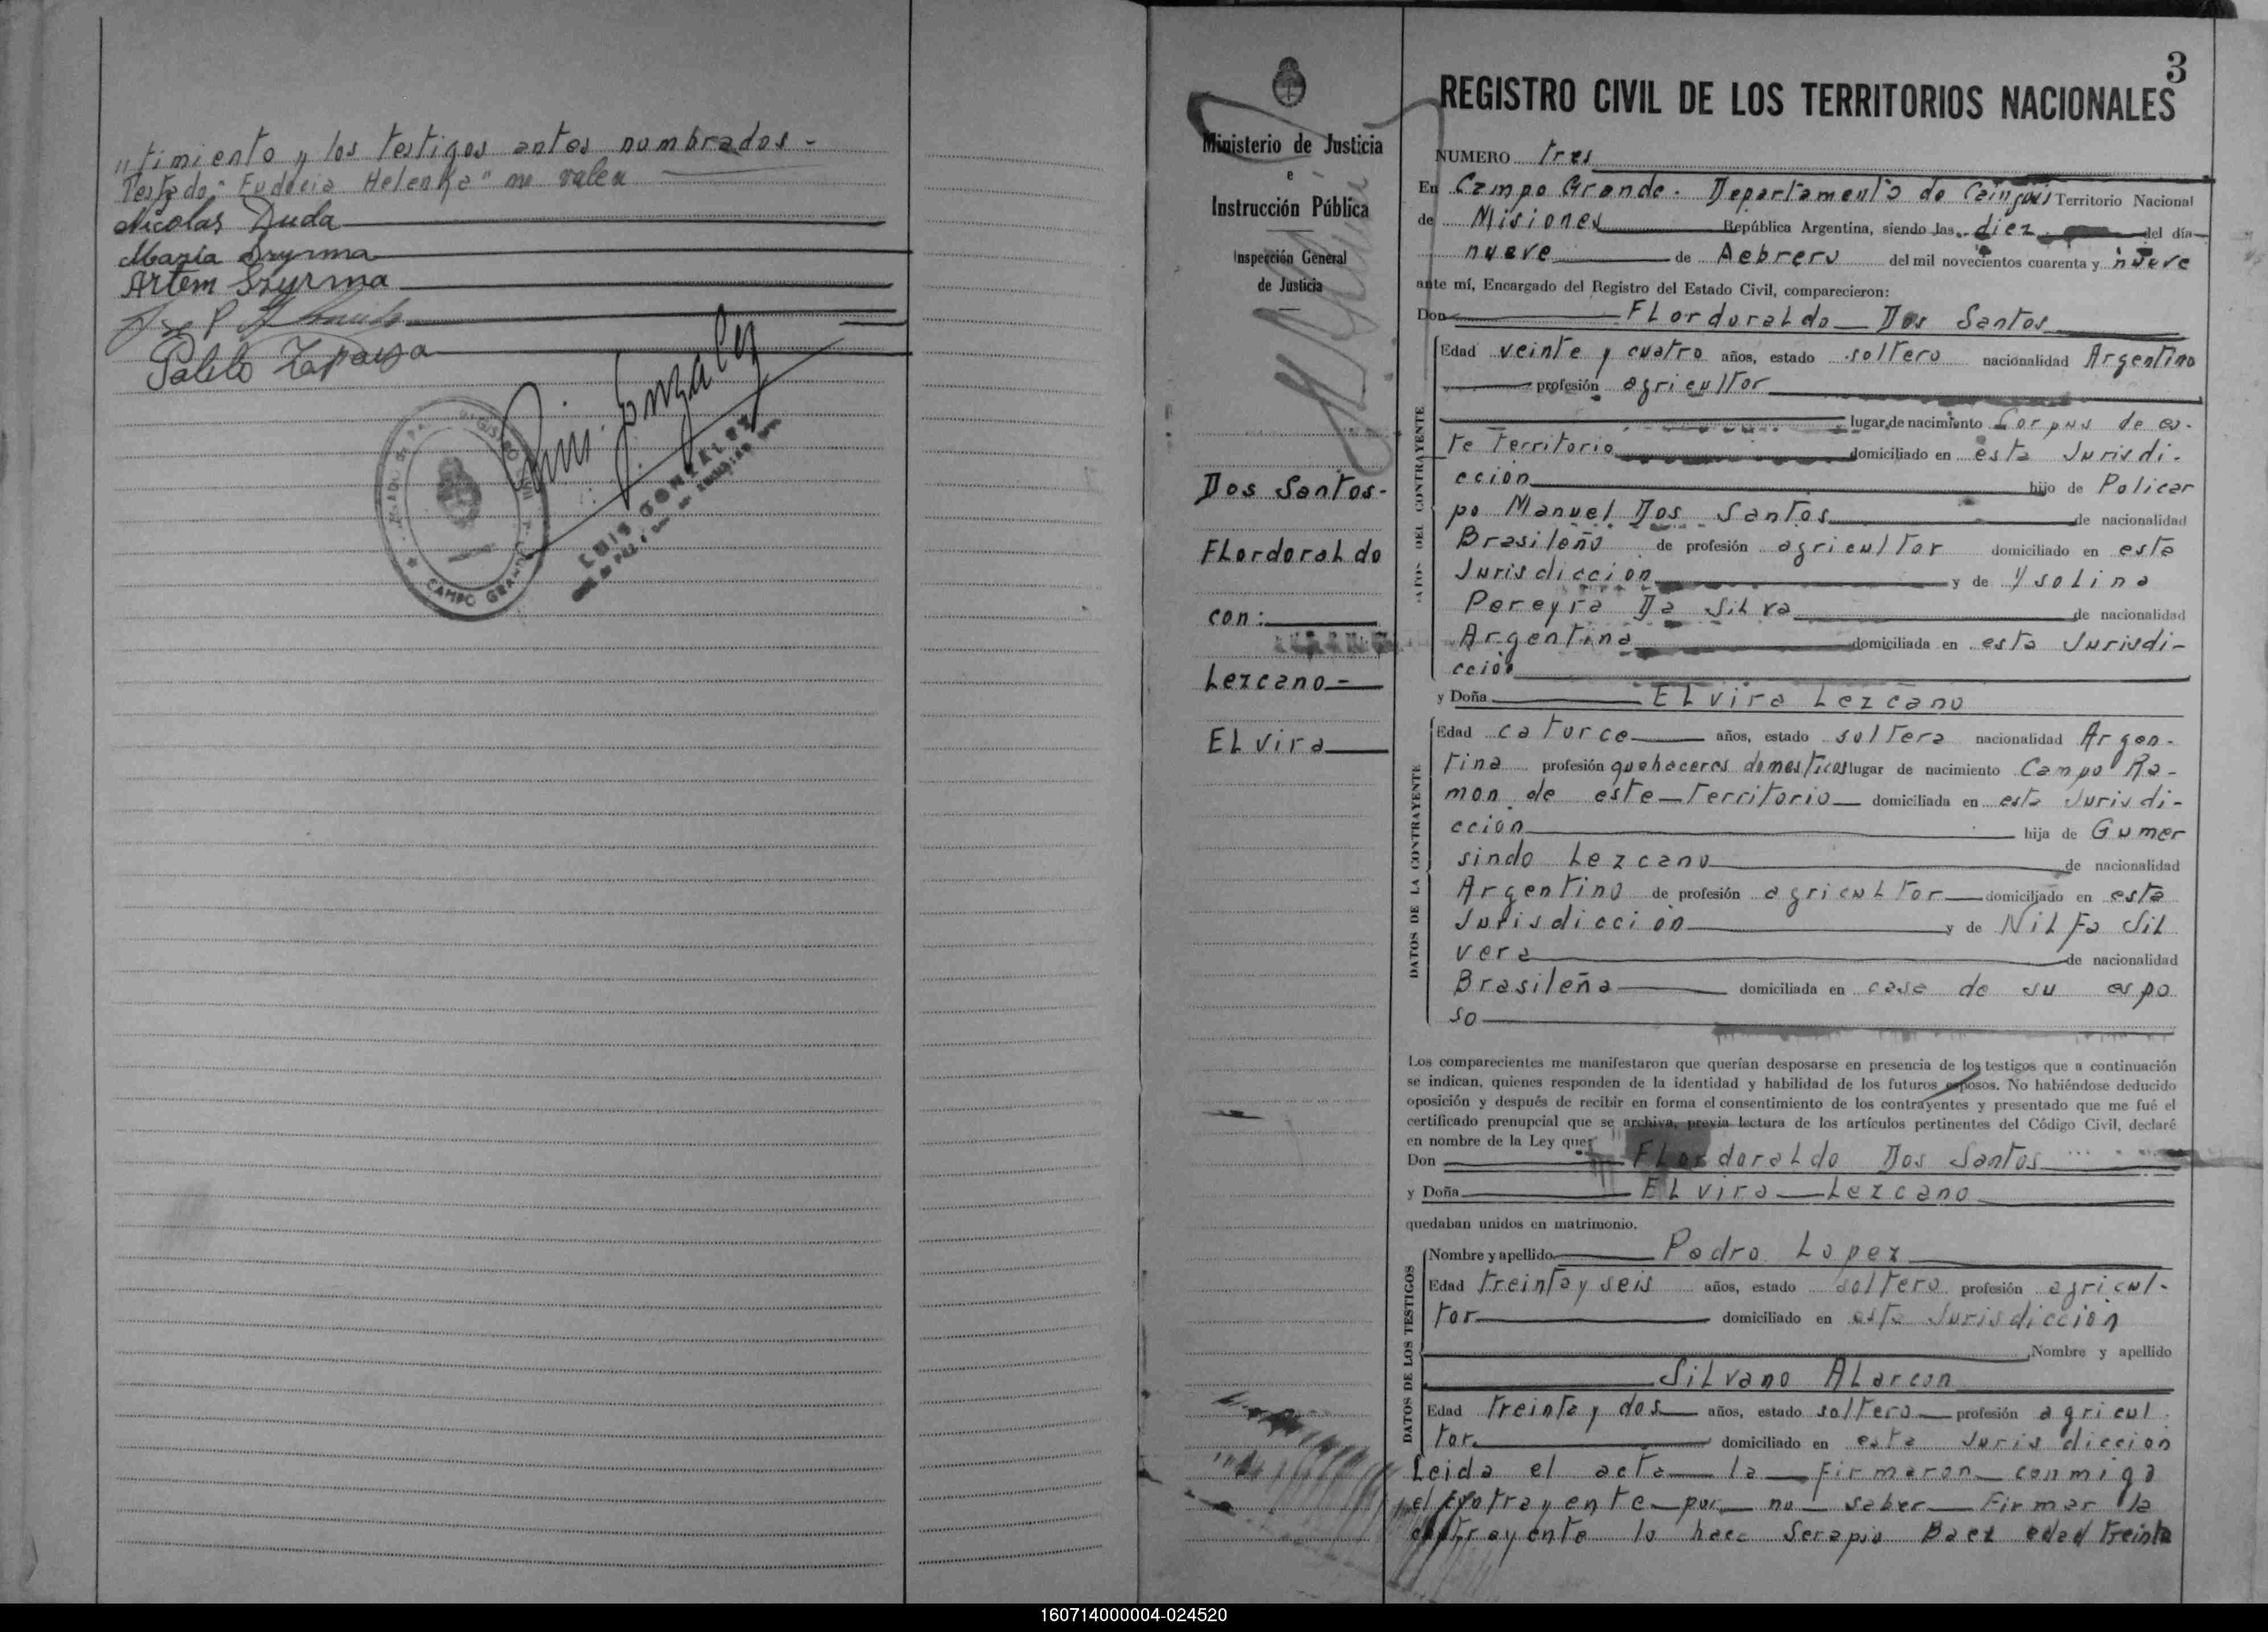 "timiento y los testigos antes nombrados-
Testado: "Eudocia Helenka" no valen
Nicolas Duda
Maria Szyrma
Artem Szyrma
Pablo Zapaya
Luis Gonzalez
LUIS GONZALEZ
CAMPO GRANDE
Ministerio de Justicia
e
Instrucción Pública
Inspección General
de Justicia
Dos Santos-
FLordoraldo
con:
Lezcano-
ELvira
3
REGISTRO CIVIL DE LOS TERRITORIOS NACIONALES
NUMERO tres
En Campo Grande. Departamento de Cainguás Territorio Nacional
de Misiones República Argentina, siendo las diez del día
nueve de Febrero del mil novecientos cuarenta y nueve
ante mí, Encargado del Registro del Estado Civil, comparecieron:
Don FLordoraLdo Dos Santos
DATOS DEL CONTRAYENTE
Edad veinte y cuatro años, estado soltero nacionalidad Argentino
profesión agricultor
lugar de nacimiento Corpus de es-
te Territorio domiciliado en esta Jurisdi-
cción hijo de Policar
po Manuel Dos Santos de nacionalidad
Brasileño de profesión agricultor domiciliado en esta
Jurisdiccion y de Ysolina
Pereyra Da Silva de nacionalidad
Argentina domiciliada en esta Jurisdi-
cción
y Doña ELvira Lezcano
DATOS DE LA CONTRAYENTE
Edad catorce años, estado soltera nacionalidad Argen-
tina profesión quehaceres domesticos lugar de nacimiento Campo Ra-
mon de este Territorio domiciliada en esta Jurisdi-
cción hija de Gumer
sindo Lezcano de nacionalidad
Argentino de profesión agricultor domiciliado en esta
Jurisdicción y de NiLfa Sil
vera de nacionalidad
Brasileña domiciliada en casa de su espo
so
Los comparecientes me manifestaron que querían desposarse en presencia de los testigos que a continuación
se indican, quienes responden de la identidad y habilidad de los futuros esposos. No habiéndose deducido
oposición y después de recibir en forma el consentimiento de los contrayentes y presentado que me fué el
certificado prenupcial que se archiva, previa lectura de los artículos pertinentes del Código Civil, declaré
en nombre de la Ley que:
Don FLordoraLdo Dos Santos
y Doña ELvira Lezcano
quedaban unidos en matrimonio.
DATOS DE LOS TESTIGOS
Nombre y apellido Pedro Lopez
Edad treinta y seis años, estado soltero profesión agricul-
tor domiciliado en esta Jurisdicción
Nombre y apellido
SiLvano ALarcon
Edad treinta y dos años, estado soltero profesión agricul
tor domiciliado en esta Jurisdicción
Leida el acta la firmaron conmigo
el contrayente por no saber firmar la
contrayente lo hace Serapio Baez edad treinta
160714000004-024520